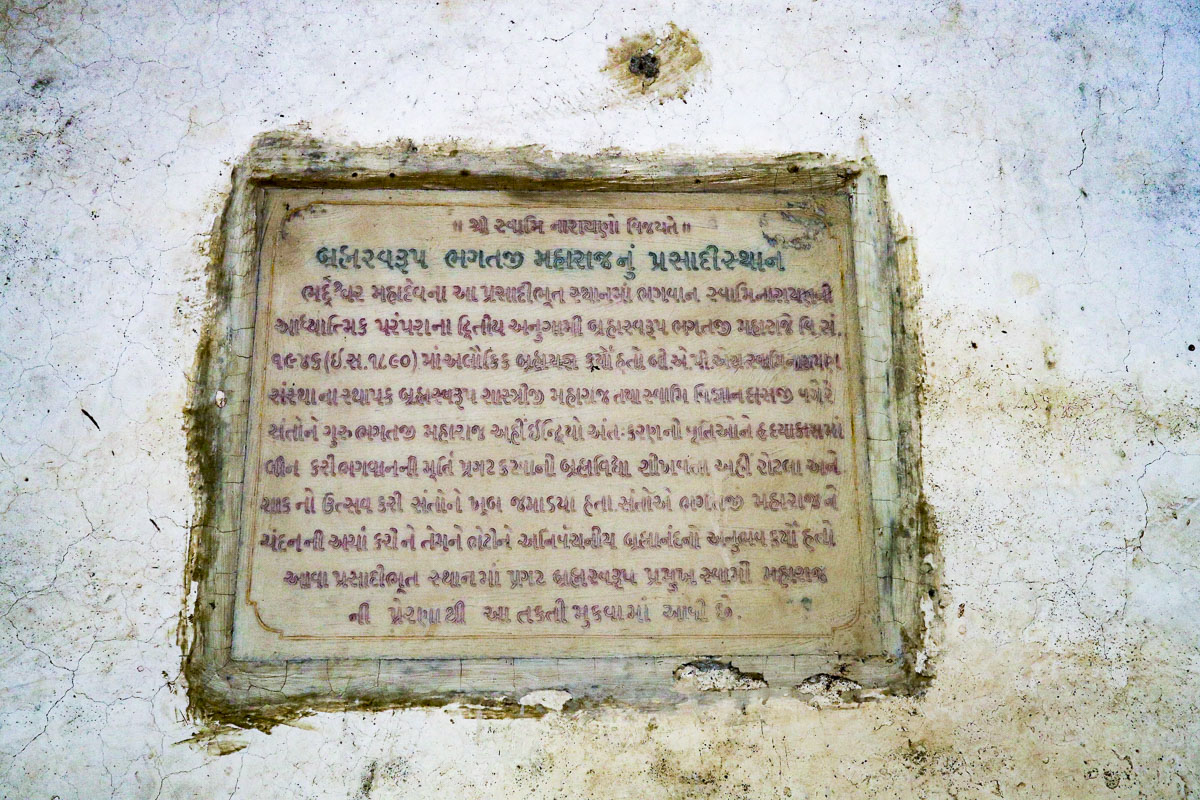 ॥ શ્રી સ્વામિ નારાયણો વિજયતે ॥
બ્રહ્મસ્વરૂપ ભગતજી મહારાજનું પ્રસાદીસ્થાન
ભદ્રેશ્વર મહાદેવના આ પ્રસાદીભૂત સ્થાનમાં ભગવાન સ્વામિનારાયણની
આધ્યાત્મિક પરંપરાના દ્વિતીય અનુગામી બ્રહ્મસ્વરૂપ ભગતજી મહારાજે વિ.સં.
૧૯૪૬(ઇ.સ.૧૮૯૦) માં અલૌકિક બ્રહ્મયજ્ઞ કર્યો હતો બી.એ.પી.એસ સ્વામિનારાયણ
સંસ્થાના સ્થાપક બ્રહ્મસ્વરૂપ શાસ્ત્રીજી મહારાજ તથા સ્વામિ વિજ્ઞાન દાસજી વગેરે
સંતોને ગુરુ ભગતજી મહારાજ અહીં ઈન્દ્રિયો અંતઃકરણની વૃતિઓને હૃદયાકાસમાં
લીન કરી ભગવાનની મૂર્તિ પ્રગટ કરવાની બ્રહ્મવિદ્યા શીખવતા અહી રોટલા અને
શાક નો ઉત્સવ કરી સંતોને ખૂબ જમાડયા હતા.સંતોએ ભગતજી મહારાજને
ચંદનની અર્ચા કરીને તેમને ભેટીને અનિર્વચનીય બ્રહ્માનંદનો અનુભવ કર્યો હતો
આવા પ્રસાદીભૂત સ્થાનમાં પ્રગટ બ્રહ્મસ્વરૂપ પ્રમુખ સ્વામી મહારાજ
ની પ્રેરણાથી આ તકતી મુકવામાં આવી છે.